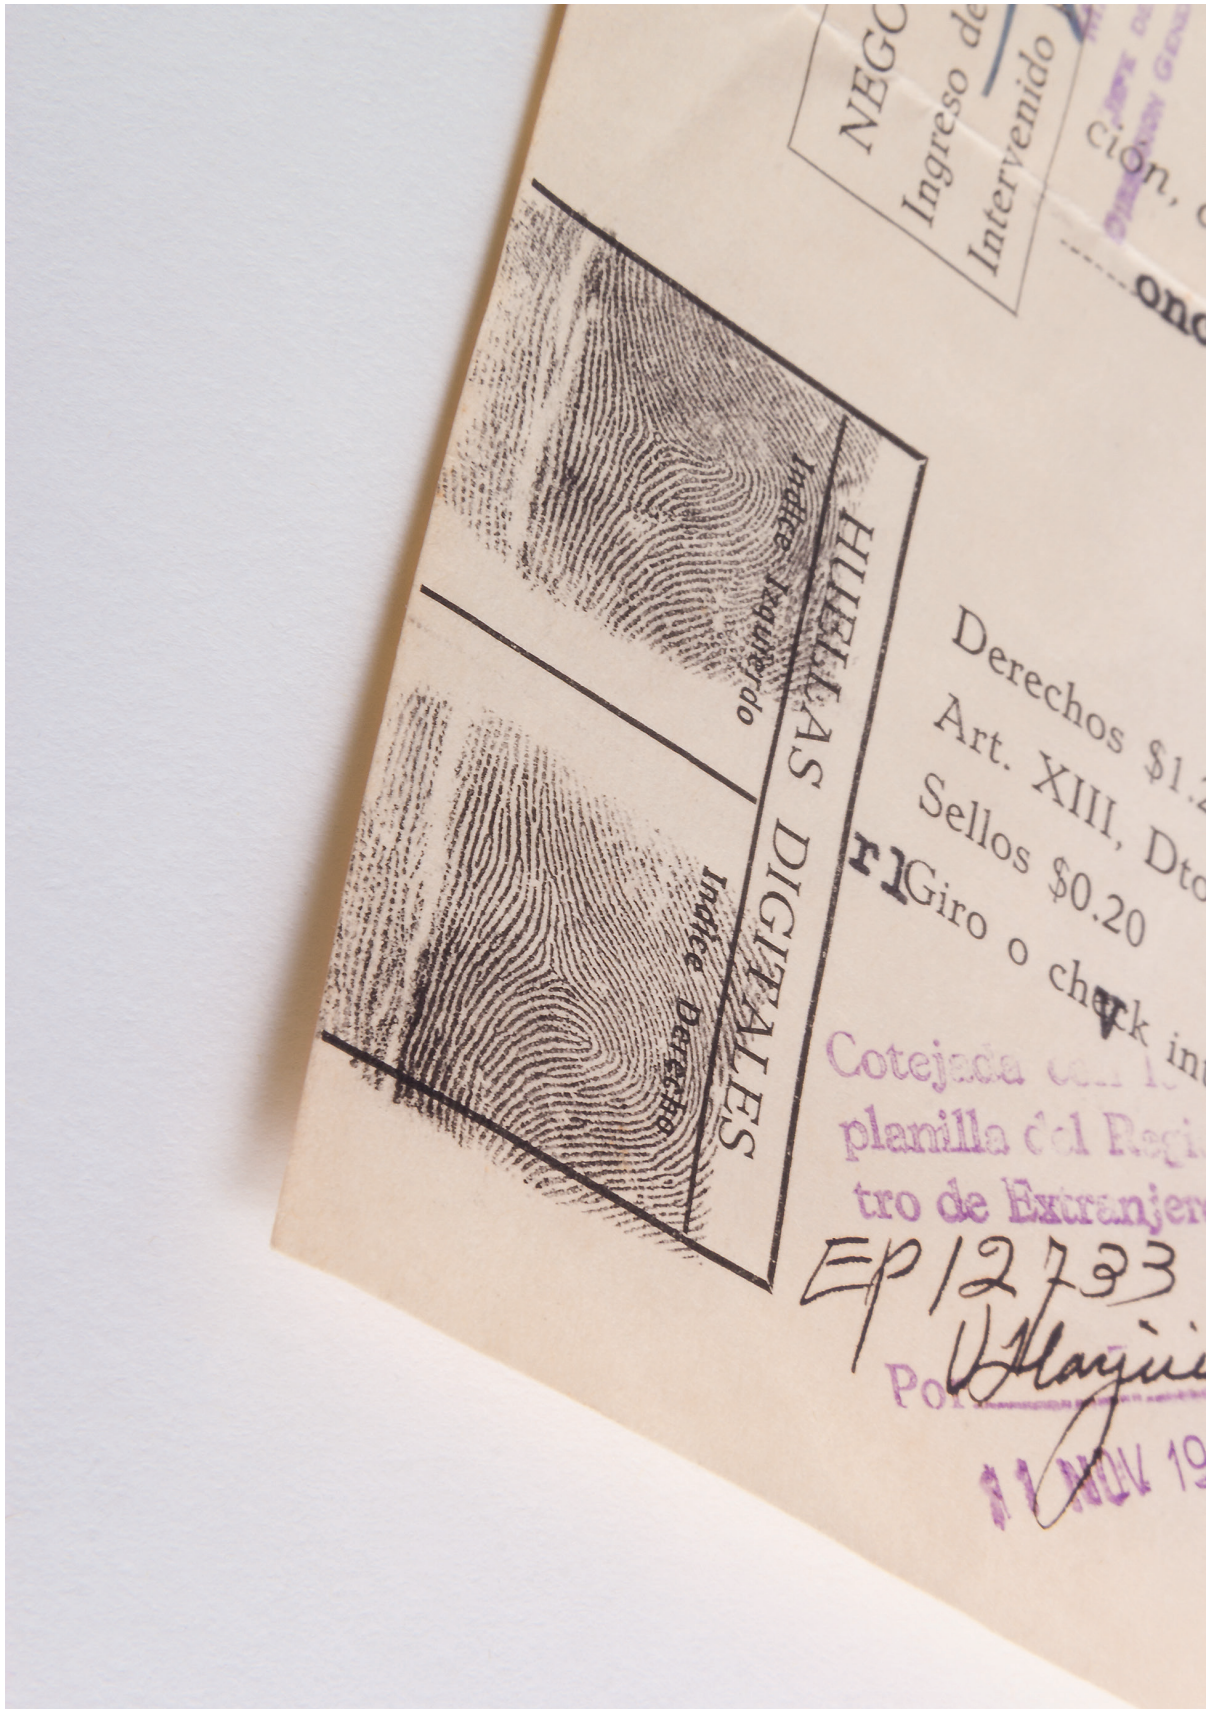 NEGO
Ingreso de
Intervenido
JEFE DE
GENE
ción,
onc
HUELLAS DIGITALES
Indice Izquierdo
Indice Derecho
Derechos $1.2
Art. XIII, Dto
Sellos $0.20
rl Giro o check int
v
Cotejada con l
planilla del Regis
tro de Extranjero
EP 12733
Por
11 NOV. 19